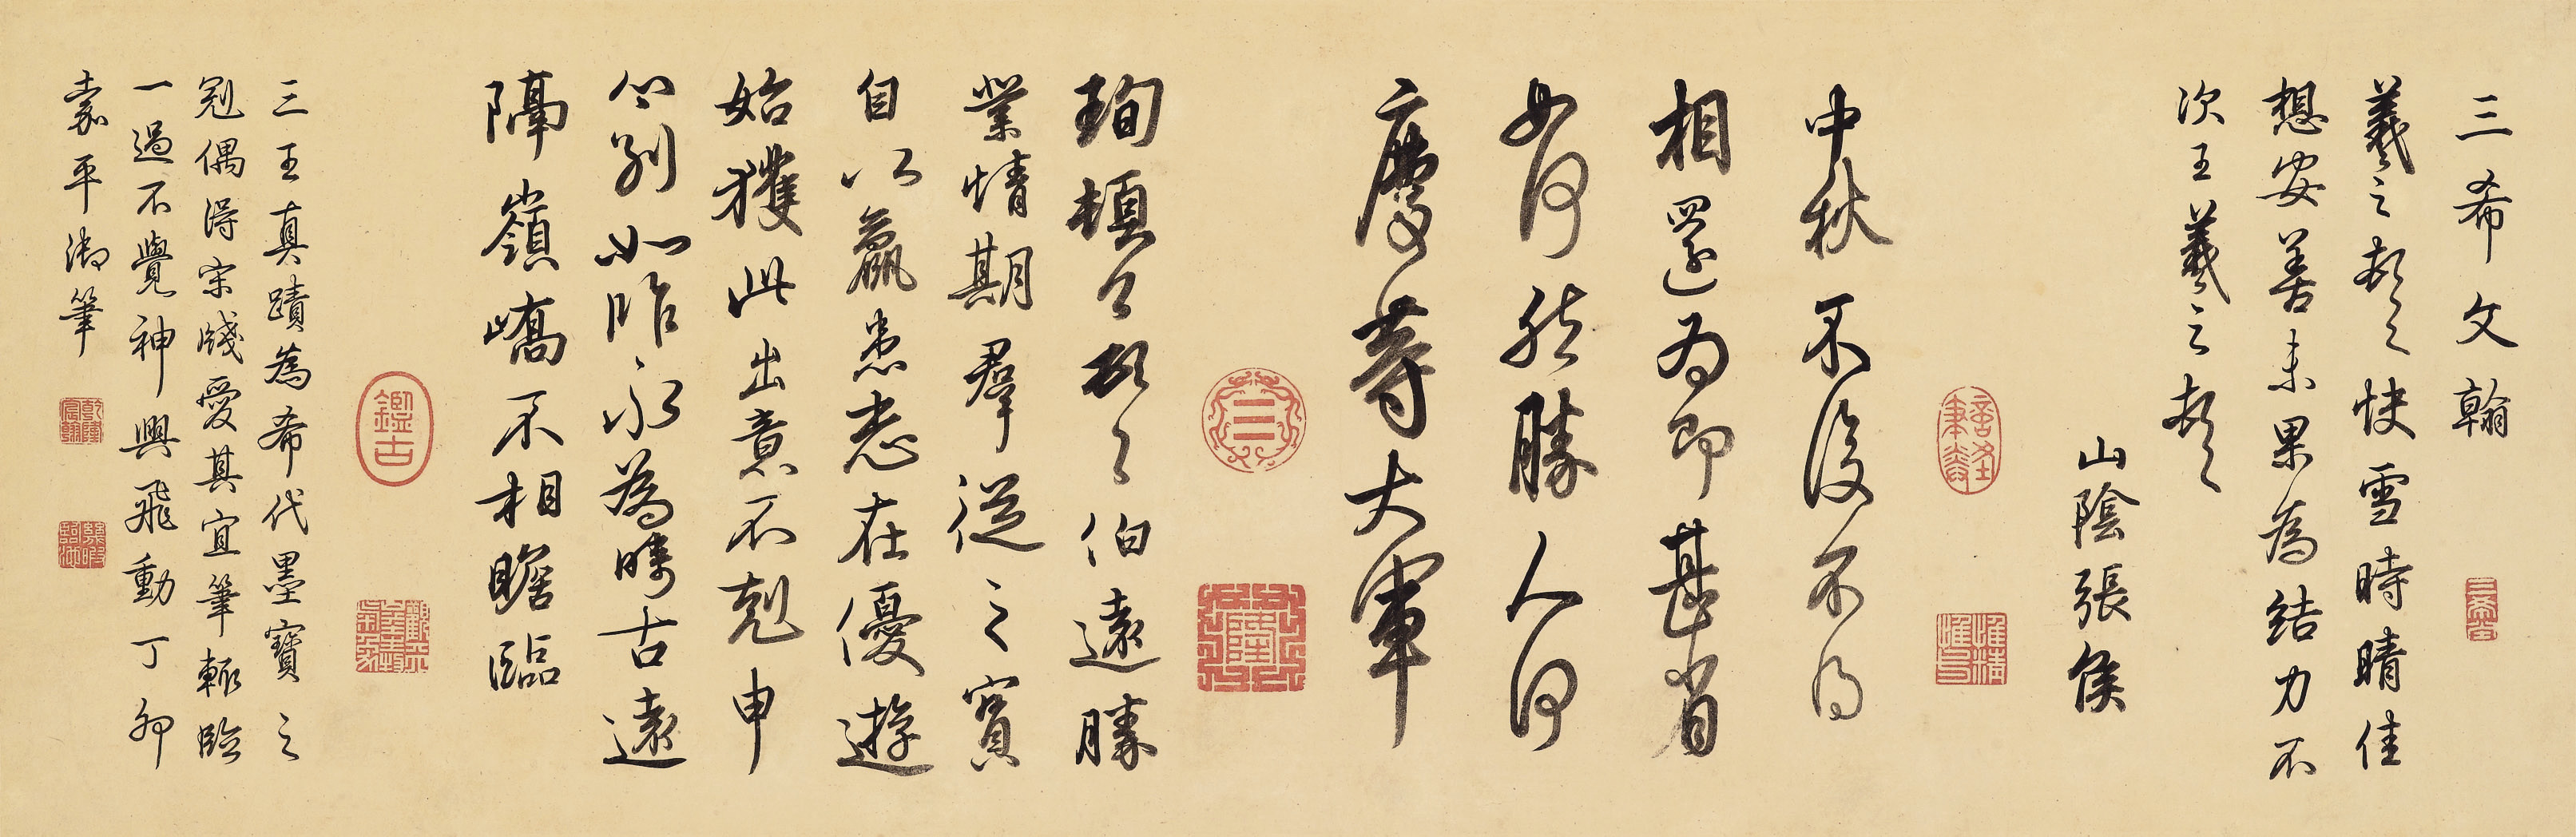 三希文翰
三希堂
羲之頓首快雪時晴佳
想安善未果為結力不
次王羲之頓首
山陰張侯
惟精惟一
中秋不復不得
相還為即甚省
如何然勝人何
慶等大軍
隆
珣頓首頓首伯遠勝
業情期羣從之寶
自以羸患志在優遊
始獲此出意不剋申
分別如昨永為疇古遠
隔嶺嶠不相瞻臨
鑑古
三王真蹟為希代墨寶之
冠偶得宋牋愛其宜筆輒臨
一過不覺神興飛動丁卯
嘉平御筆
乾隆宸翰
幾暇臨池